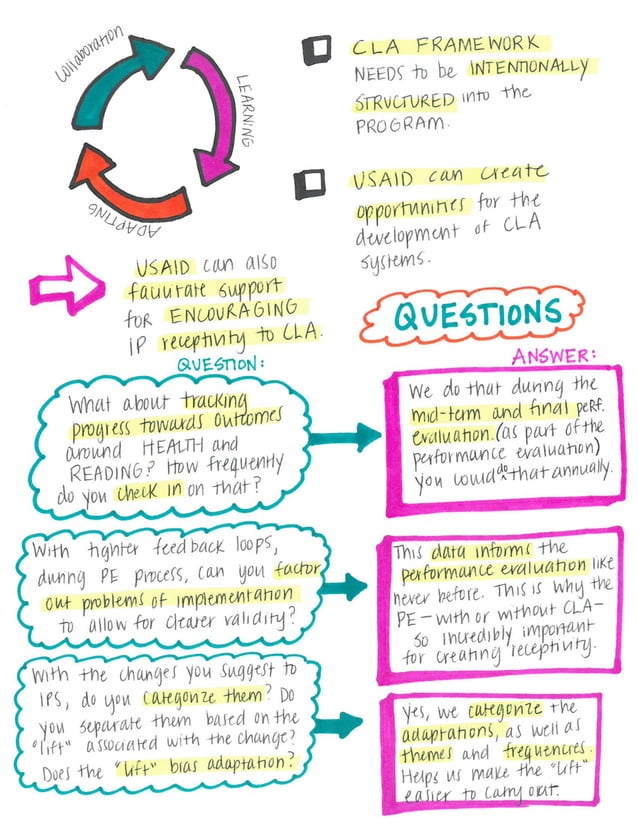 Collaboration
LEARNING
ADAPTING
CLA FRAMEWORK
NEEDS to be INTENTIONALLY
STRUCTURED into the
PROGRAM.
USAID can create
opportunities for the
development of CLA
systems.
USAID can also
facilitate support
for ENCOURAGING
IP receptivity to CLA.
QUESTIONS
QUESTION:
ANSWER:
What about tracking
progress towards outcomes
around HEALTH and
READING? How frequently
do you check in on that?
We do that during the
mid-term and final perf.
evaluation. (as part of the
performance evaluation)
you could do that annually.
With tighter feedback loops,
during PE process, can you factor
out problems of implementation
to allow for clearer validity?
This data informs the
performance evaluation like
never before. This is why the
PE - with or without CLA -
so incredibly important
for creating receptivity.
With the changes you suggest to
IPS, do you categorize them? Do
you separate them based on the
"lift" associated with the change?
Does the "lift" bias adaptation?
Yes, we categorize the
adaptations, as well as
themes and frequencies.
Helps us make the "lift"
easier to carry out.